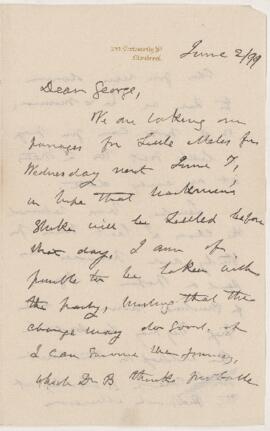 Montreal.
June 2/99
Dear George,
We are taking our
passages for Little Metis for
Wednesday next June 7,
in hope that trackmen's
strike will be settled before
that day. I am if
possible to be taken with
the party, trusting that the
change may do good, if
I can survive the journey,
which Dr B. thinks probable